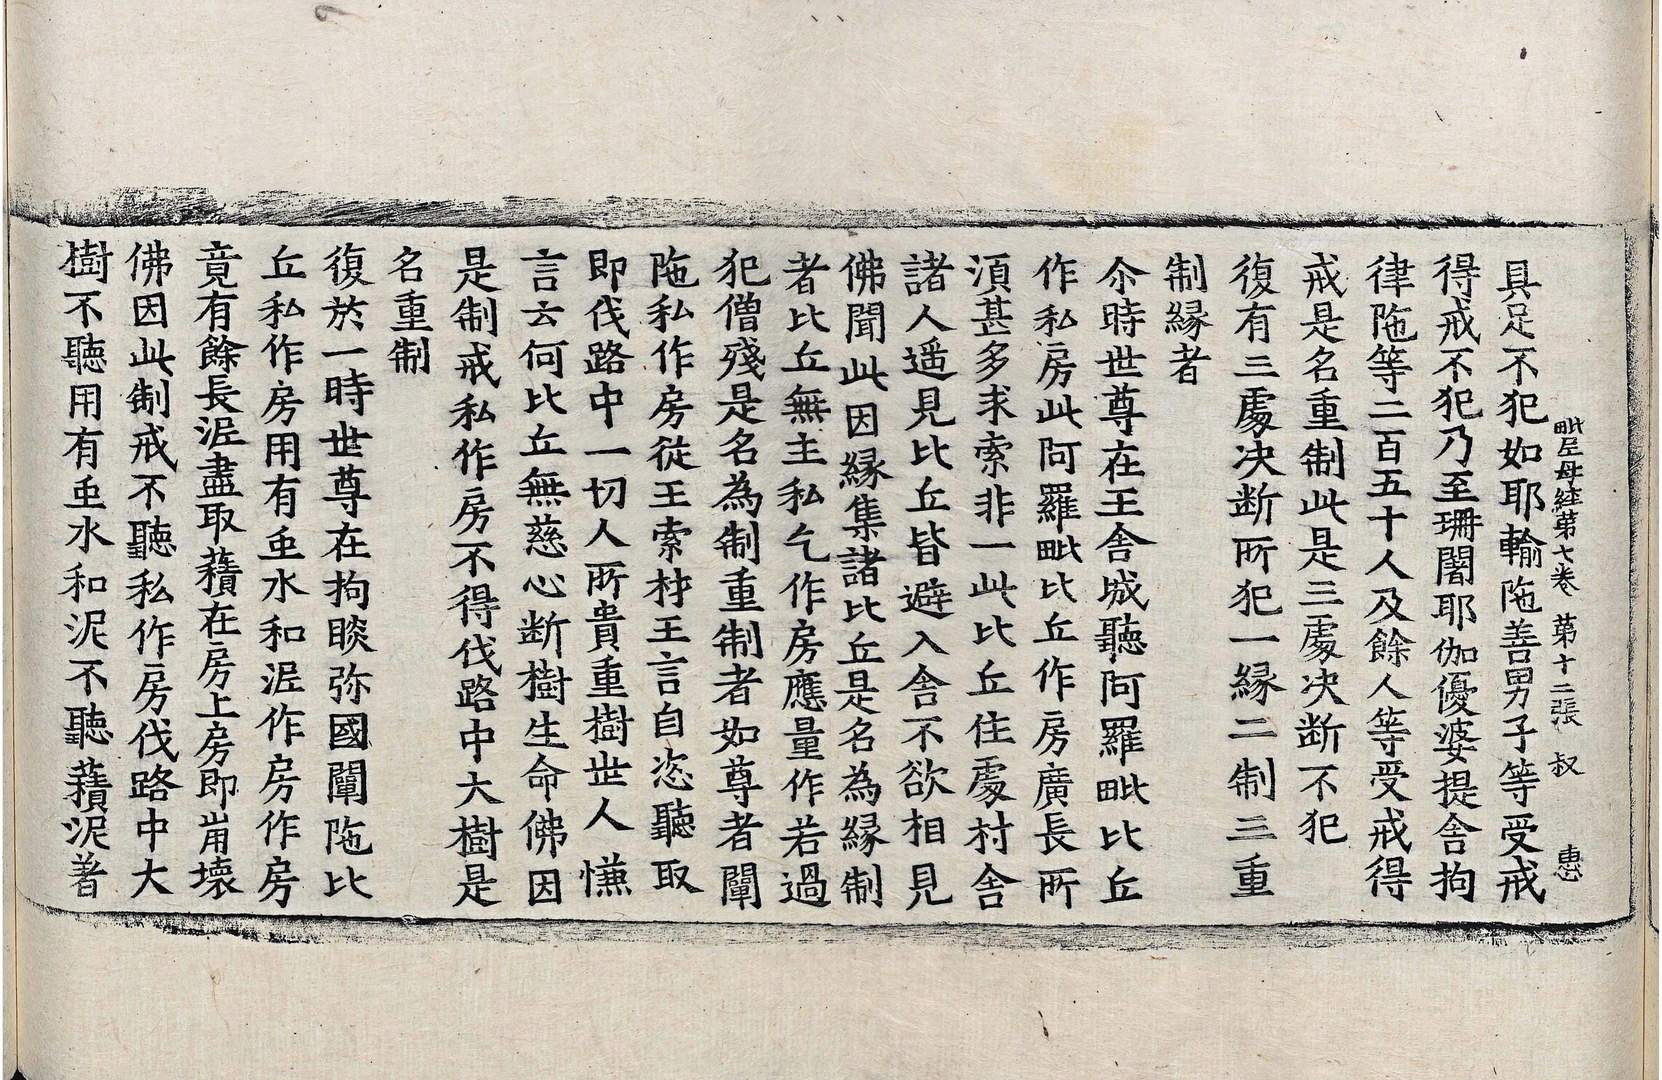 毗尼母經第七卷 第十二張 叔 惠
具足不犯如耶輸陁善男子等受戒
得戒不犯乃至珊闍耶伽優婆提舍拘
律陁等二百五十人及餘人等受戒得
戒是名重制此是三處决断不犯
復有三處决断所犯一緣二制三重
制緣者
尒時世尊在王舍城聽阿羅毗比丘
作私房此阿羅毗比丘作房廣長所
湏甚多求索非一此比丘住處村舍
諸人遥見比丘皆避入舍不欲相見
佛聞此因緣集諸比丘是名為緣制
者比丘無主私乞作房應量作若過
犯僧殘是名為制重制者如尊者闡
陁私作房從王索材王言自恣聽取
即伐路中一切人所貴重樹世人慊
言云何比丘無慈心断樹生命佛因
是制戒私作房不得伐路中大樹是
名重制
復於一時世尊在拘睒弥國闡陁比
丘私作房用有虫水和泥作房作房
竟有餘長泥盡取積在房上房即崩壞
佛因此制戒不聽私作房伐路中大
樹不聽用有虫水和泥不聽積泥著